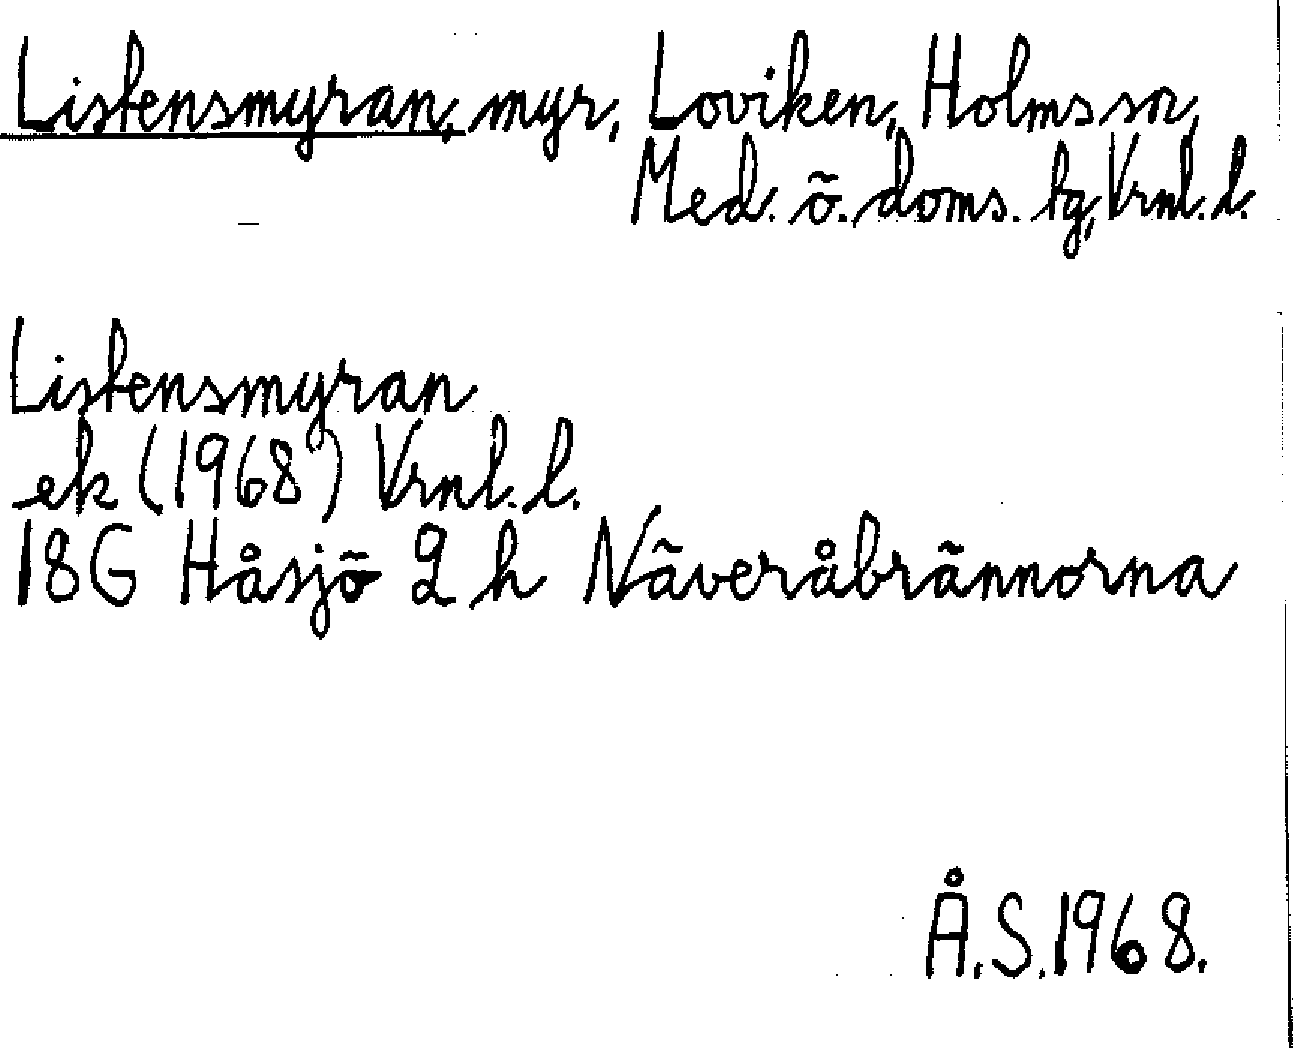 Listensmyran, myr, Loviken, Holms sn,
Med. ö. doms. lg, Vrnl. l.
Listensmyran
ek (1968) Vrnl. l.
18G Håsjö 2 h Näveråbrännorna
Å.S. 1968.